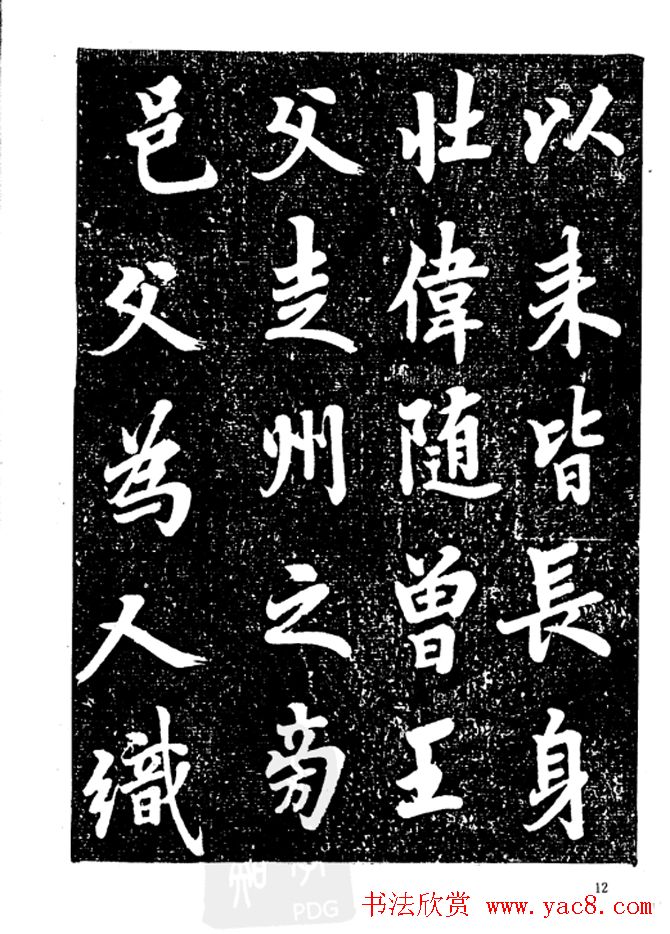 以来皆長身
壮偉随曾王
父走州之旁
邑父為人織
12
PDG
书法欣赏 www.yac8.com